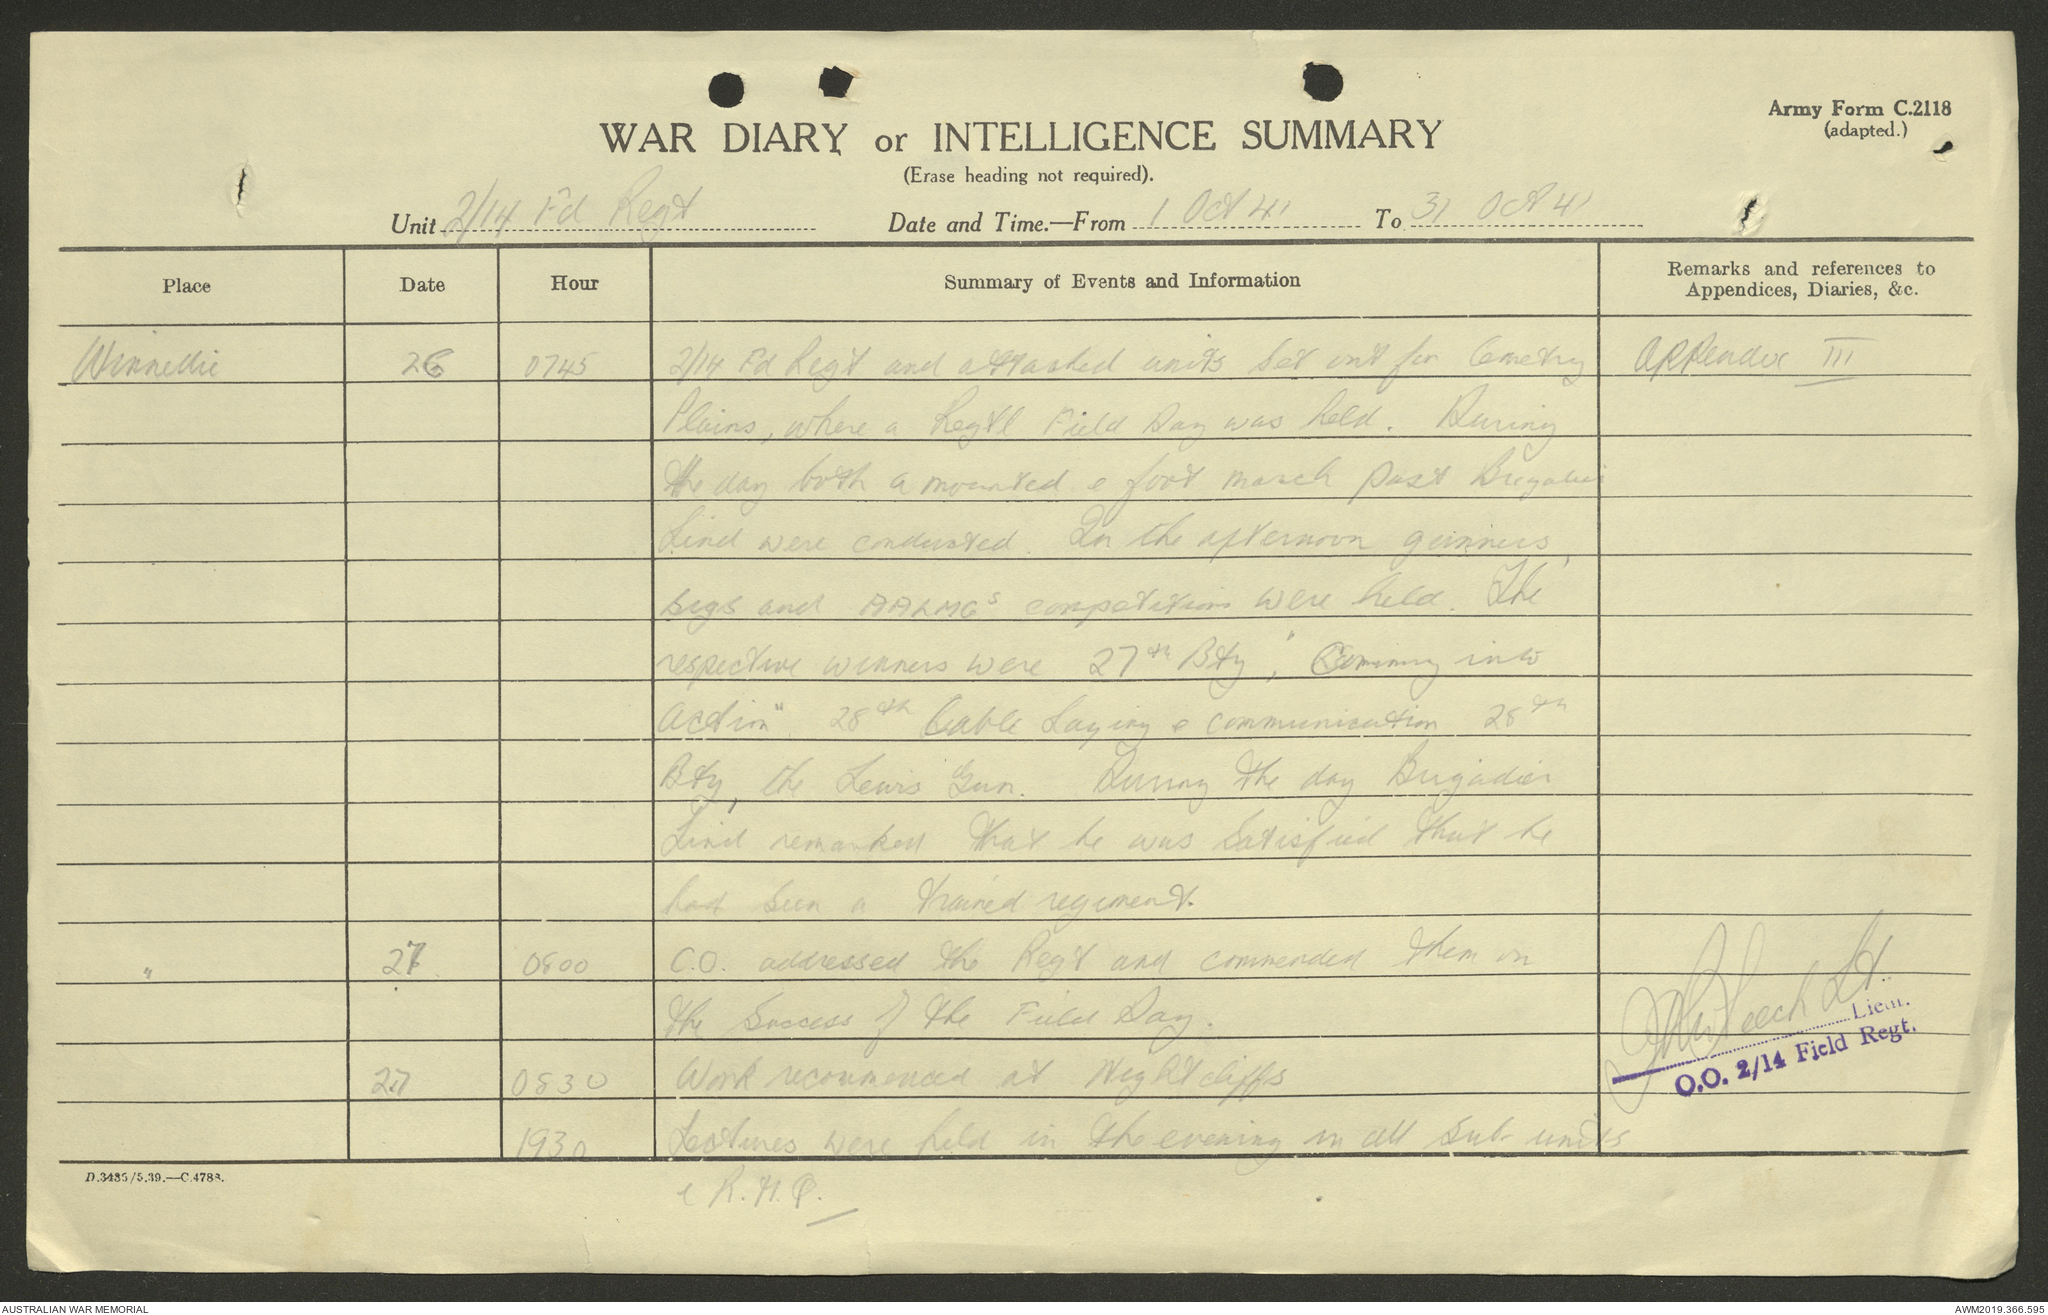 Army Form C.2118
(adapted.)
WAR DIARY or INTELLIGENCE SUMMARY
(Erase heading not required).
Unit 2/14 Fd Regt Date and Time.—From 1 Oct 41 To 31 Oct 41
Place Date Hour Summary of Events and Information Remarks and references to
Appendices, Diaries, &c.
Winnellie 26 0745 2/14 Fd Regt and attached units set out for Cemetry Appendix III
Plains, where a Regt'l Field Day was held. During
the day both a mounted & foot march past Brigadier
Lind were conducted. In the afternoon gunners,
sigs and AALMGs competitions were held. The
respective winners were 27th Bty, "Coming into
Action" 28th Cable Laying & communication 28th
Bty, the Lewis Gun. During the day Brigadier
Lind remarked that he was satisfied that he
had seen a trained regiment.
" 27 0800 C.O. addressed the Regt and commended them on
the success of the Field Day.
27 0830 Work recommenced at Nightcliffs
1930 Lectures were held in the evening in all sub-units
& R.H.Q.
Leech Lt.
Lieut.
O.O. 2/14 Field Regt.
D.3435/5.39.—C.4783.
AUSTRALIAN WAR MEMORIAL
AWM2019.366.595